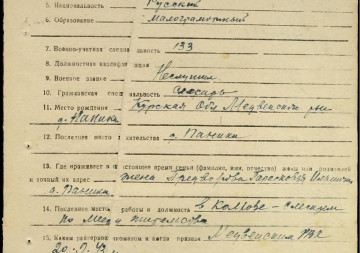 5. Национальность Русский
6. Образование малограмотный
7. Военно-учетная специальность 133
8. Должностная квалификация
9. Военное звание Неслужил
10. Гражданская специальность слесарь
11. Место рождения Курская Обл Медвенский рн
д. Паники
12. Последнее место жительства д. Паники
13. Где проживает в настоящее время семья (фамилия, имя, отчество) жены или родителей
и точный их адрес жена
д. Паники
14. Последнее место работы и должность в Колхозе
15. Каким райвоенкоматом и когда призван Медвенским РВК